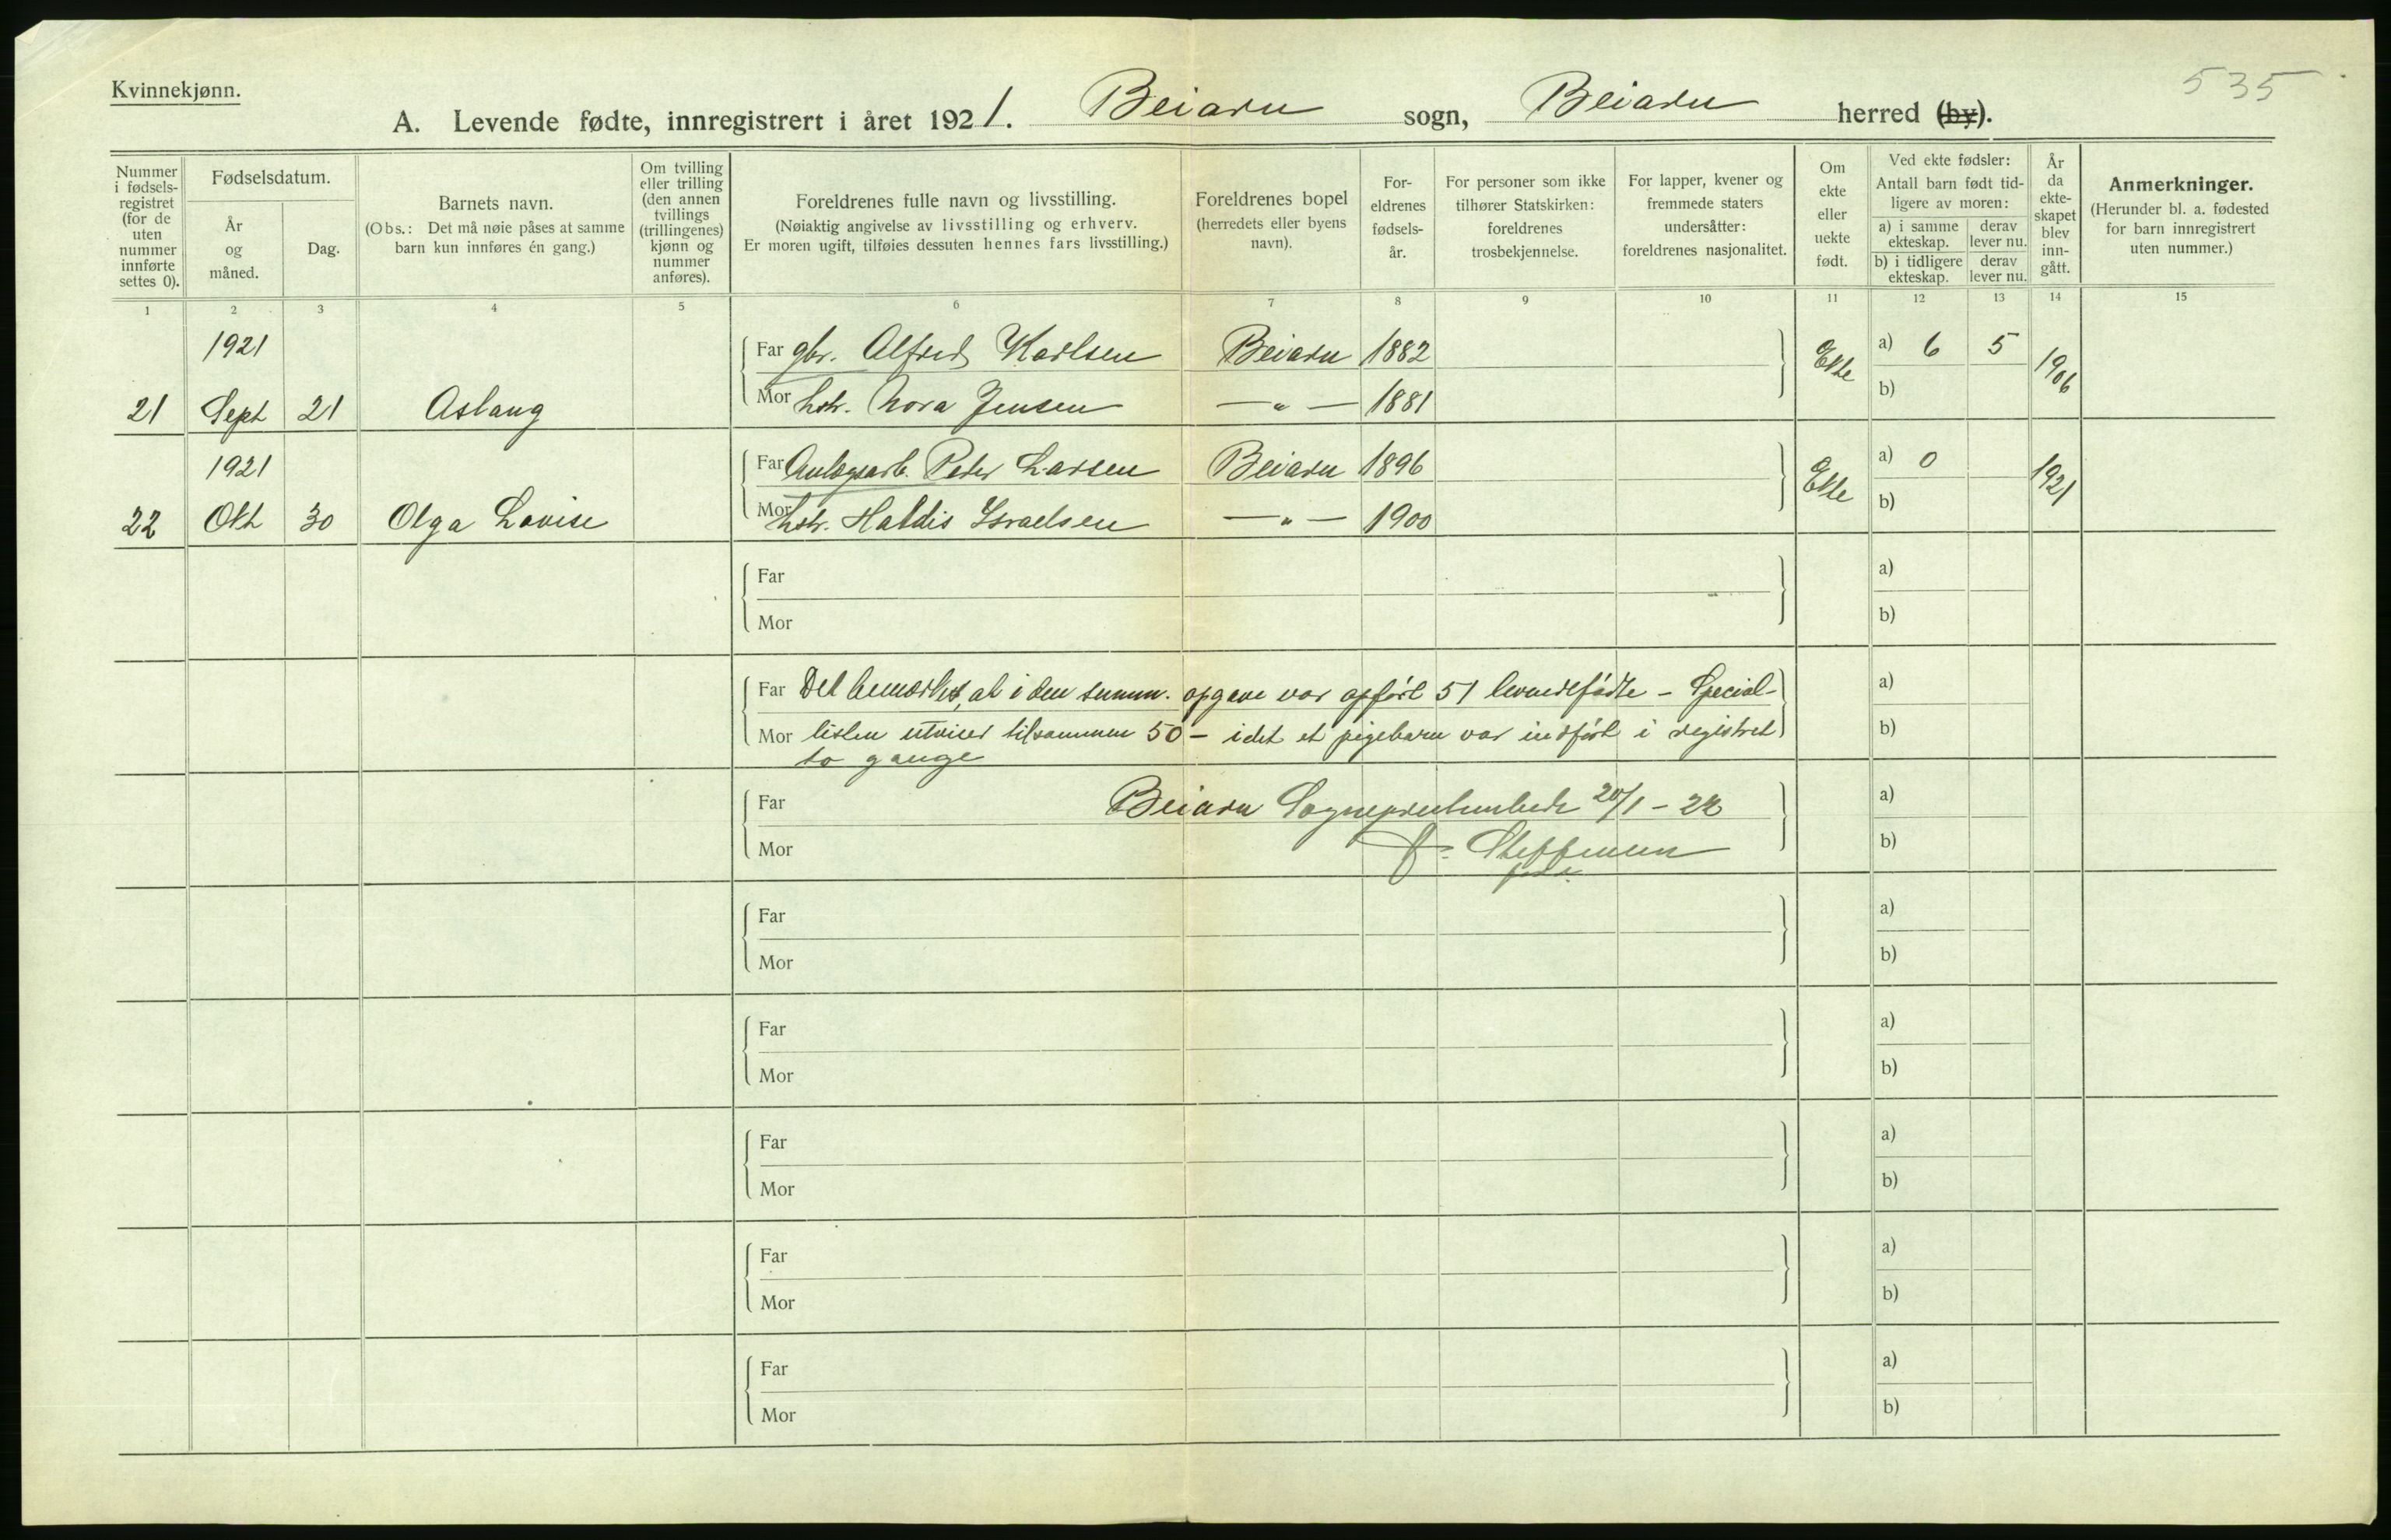 535
Kvinnekjønn.
A. Levende fødte, innregistrert i året 1921. Beiarn sogn, Beiarn herred (by).
Nummer i fødsels-registret (for de uten nummer innførte settes 0).
Fødselsdatum.
År og måned.
Dag.
Barnets navn.
(Obs.: Det må nøie påses at samme barn kun innføres én gang.)
Om tvilling eller trilling (den annen tvillings (trillingenes) kjønn og nummer anføres).
Foreldrenes fulle navn og livsstilling.
(Nøiaktig angivelse av livsstilling og erhverv.
Er moren ugift, tilføies dessuten hennes fars livsstilling.)
Foreldrenes bopel
(herredets eller byens navn).
For-eldrenes fødsels-år.
For personer som ikke tilhører Statskirken: foreldrenes trosbekjennelse.
For lapper, kvener og fremmede staters undersåtter: foreldrenes nasjonalitet.
Om ekte eller uekte født.
Ved ekte fødsler:
Antall barn født tid-ligere av moren:
a) i samme ekteskap.
derav lever nu.
b) i tidligere ekteskap.
derav lever nu.
År da ekte-skapet blev inn-gått.
Anmerkninger.
(Herunder bl. a. fødested for barn innregistrert uten nummer.)
1 2 3 4 5 6 7 8 9 10 11 12 13 14 15
1921 Far gbr. Alfred Karlsen Beiarn 1882 Ekte a) 6 5 1906
21 Sept 21 Aslaug Mor hstr. Nora Jensen —"— 1881 b)
1921 Far Anlægsarb. Peder Larsen Beiarn 1896 Ekte a) 0 1921
22 Okt 30 Olga Lovise Mor hstr. Haldis Israelsen —"— 1900 b)
Far a)
Mor b)
Far Det bemærkes, at i den summ. opgave var opført 51 levendefødte – Special- a)
Mor listen utviser tilsammen 50 – idet et pigebarn var indført i registret b)
to gange
Far Beiarn Sogneprestembede 20/1 – 22 a)
Mor Steffensen b)
Far a)
Mor b)
Far a)
Mor b)
Far a)
Mor b)
Far a)
Mor b)
Far a)
Mor b)